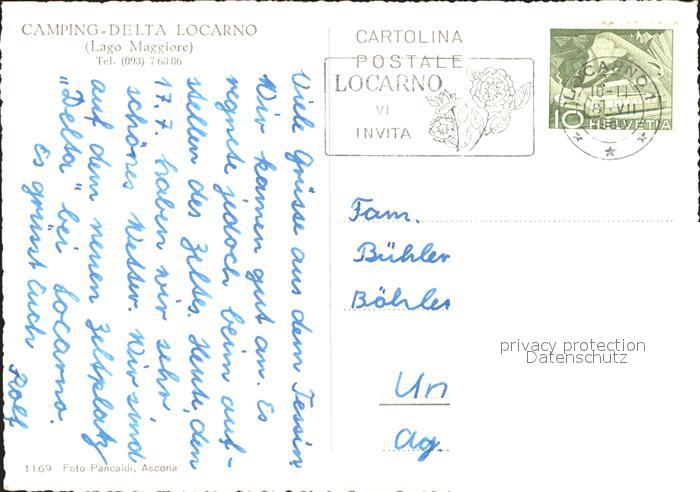 CAMPING-DELTA LOCARNO
(Lago Maggiore)
Tel. (093) 7 60 86
Viele Grüsse aus dem Tessin.
Wir kamen gut an. Es
regnete jedoch beim auf-
stellen des Zeltes. Heute, den
17. 7. haben wir sehr
schönes Wetter. Wir sind
auf dem neuen Zeltplatz
"Delta" bei Locarno.
Es grüsst Euch
Rolf
1169 Foto Pancaldi, Ascona
CARTOLINA
POSTALE
LOCARNO
VI
INVITA
LOCARNO 1
10-11
VII
10 HELVETIA
Fam.
Bühler
Böhler
Un
Ag.
privacy protection
Datenschutz